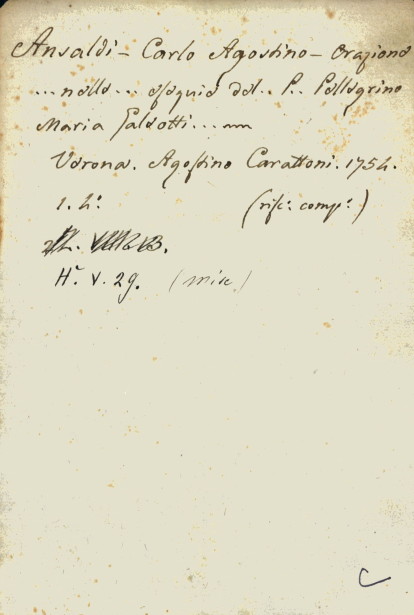 Ansaldi - Carlo Agostino - Orazione
... nelle ... esequie del .. P.. Pellegrino
Maria Galeotti ...
Verona. Agostino Carattoni. 1754.
1. 4º. (risc: comp:)
Hr. V. 29. (misc.)
C